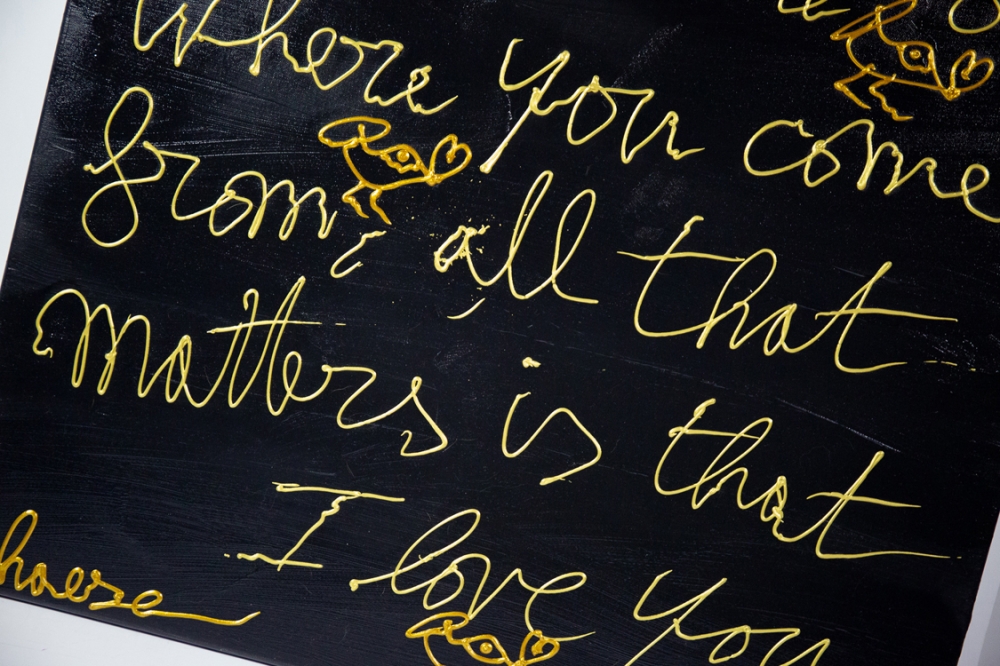 Where you come
from, all that
matters is that
I love you